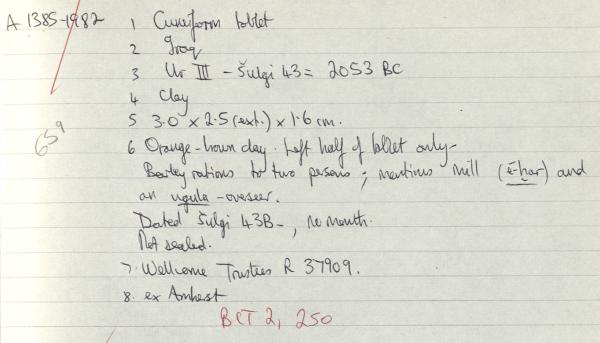 A 1385-1982
1 Cuneiform tablet
2 Iraq
3 Ur III - Šulgi 43 = 2053 BC
4 Clay
5 3.0 × 2.5 (ext.) × 1.6 cm.
659
6 Orange-brown clay. Left half of tablet only-
Barley rations to two persons; mentions mill (é-ḫar) and
an ugula-overseer.
Dated Šulgi 43B-, no month.
Not sealed.
7. Wellcome Trustees R 37909.
8. ex Amherst
BCT 2, 250